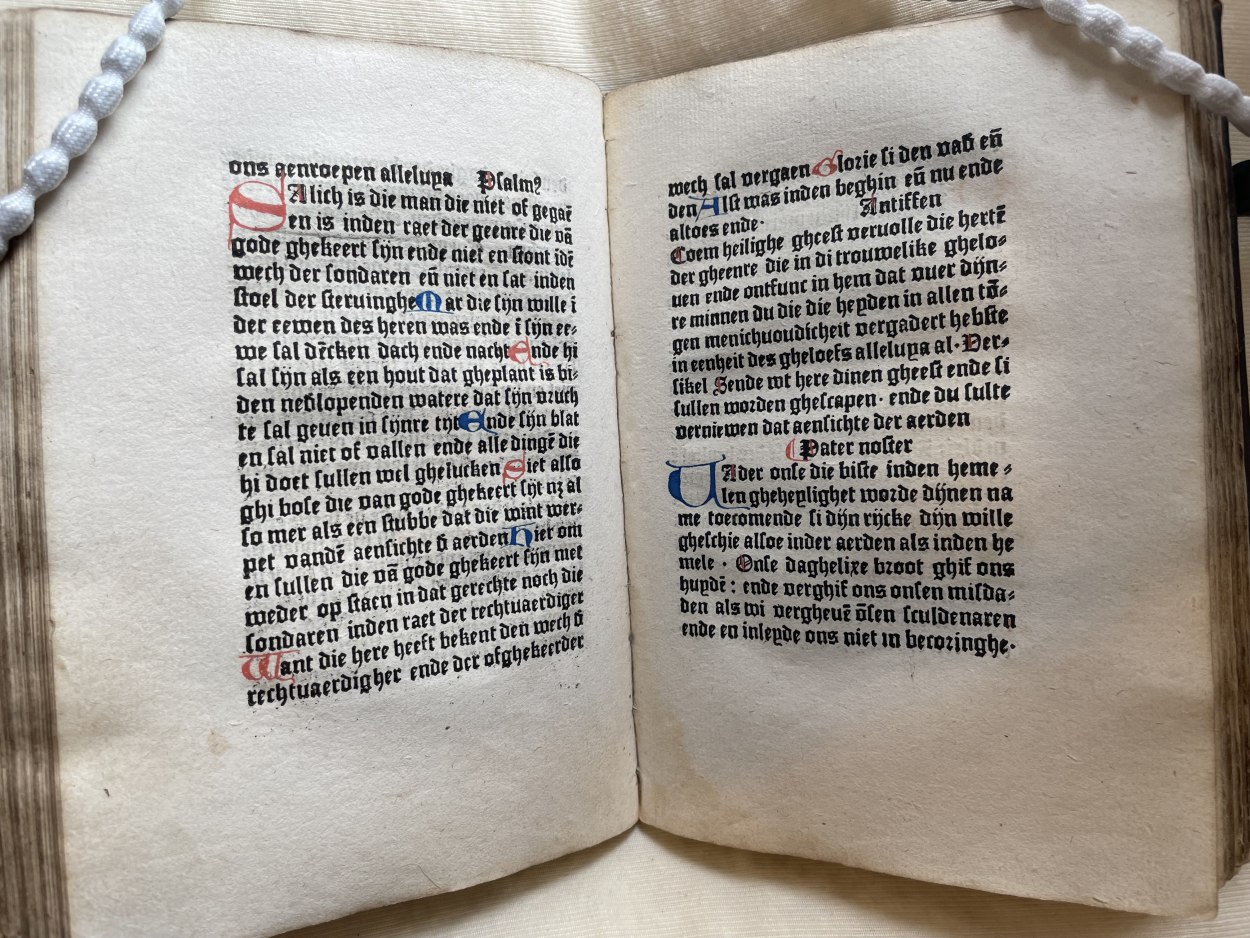 ons aenroepen alleluya Psalmꝰ
SAlich is die man die niet of gegaē
en is inden raet der geenre die vā
gode ghekeert sijn ende niet en stont idē
wech der sondaren eñ niet en sat inden
stoel der steruinghe Mar die sijn wille i
der eewen des heren was ende ī sijn ee⸗
we sal dēcken dach ende nacht Ende hi
sal sijn als een hout dat gheplant is bi⸗
den neßlopenden watere dat sijn vruch
te sal geuen in sijnre tijt Ende sijn blat
en sal niet of vallen ende alle dingē die
hi doet sullen wel ghelucken Niet also
ghi bose die van gode ghekeert sijt nꝫ al
so mer als een stubbe dat die wint wer⸗
pet vandē aensichte ẟ aerden Hier om
en sullen die vā gode ghekeert sijn niet
weder op staen in dat gerechte noch die
sondaren inden raet der rechtuaerdiger
Want die here heeft bekent den wech ẟ
rechtuaerdigher ende der ofghekeerder
wech sal vergaen Glorie si den vaẟ eñ
den Alst was inden beghin eñ nu ende
altoes ende· Antiffen
Coem heilighe gheest vervolle die hertē
der gheenre die in di trouwelike ghelo⸗
uen ende ontfunc in hem dat vuer dijn⸗
re minnen du die die heyden in allen tō⸗
gen menichuoudicheit vergadert hebste
in eenheit des gheloefs alleluya al· Ver⸗
sikel Sende wt here dinen gheest ende si
sullen worden ghescapen· ende du sulte
verniewen dat aensichte der aerden
Pater noster
VAder onse die biste inden heme⸗
len gheheylighet worde dijnen na
me toecomende si dijn rijcke dijn wille
gheschie alsoe inder aerden als inden he
mele · Onse daghelixe broot ghif ons
huydē : ende verghif ons onsen misda⸗
den als wi vergheuē ōsen sculdenaren
ende en inleyde ons niet in becoringhe·